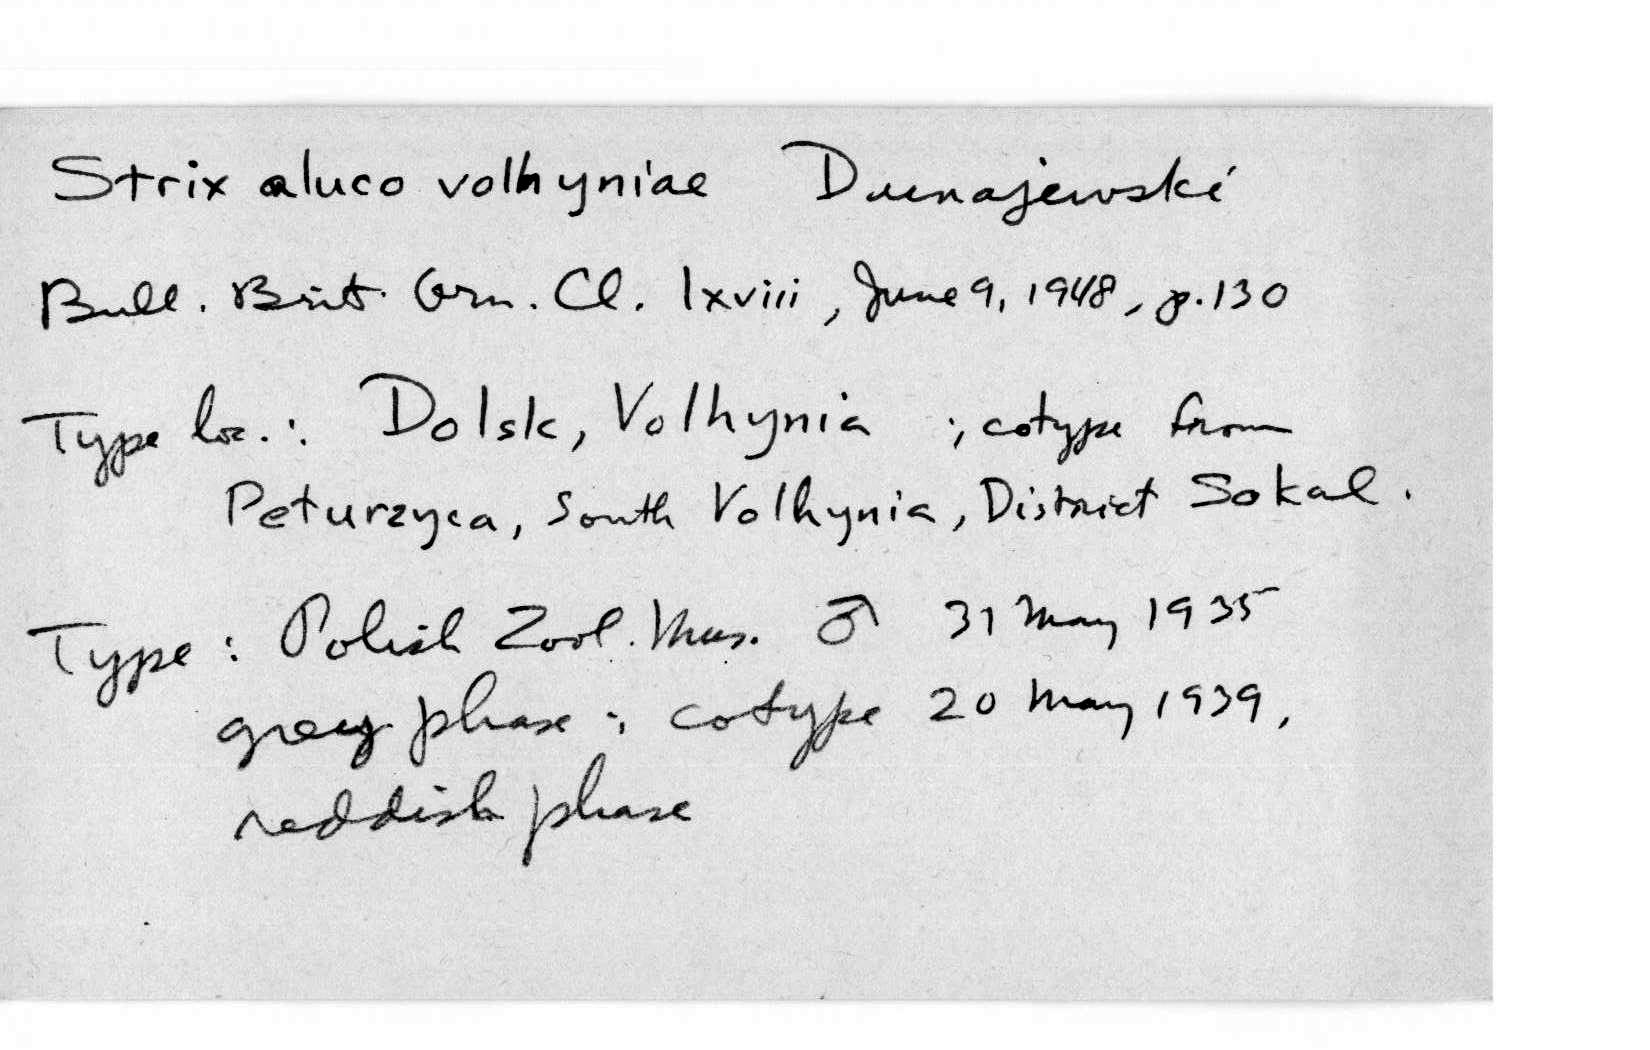 Strix aluco volhyniae Dunajewski
Bull. Brit. Orn. Cl. lxviii, June 9, 1948, p. 130
Type loc.: Dolsk, Volhynia ; cotype from
Peturzyca, South Volhynia, District Sokal.
Type: Polish Zool. Mus. ♂ 31 May 1935
grey phase; cotype 20 May 1939,
reddish phase